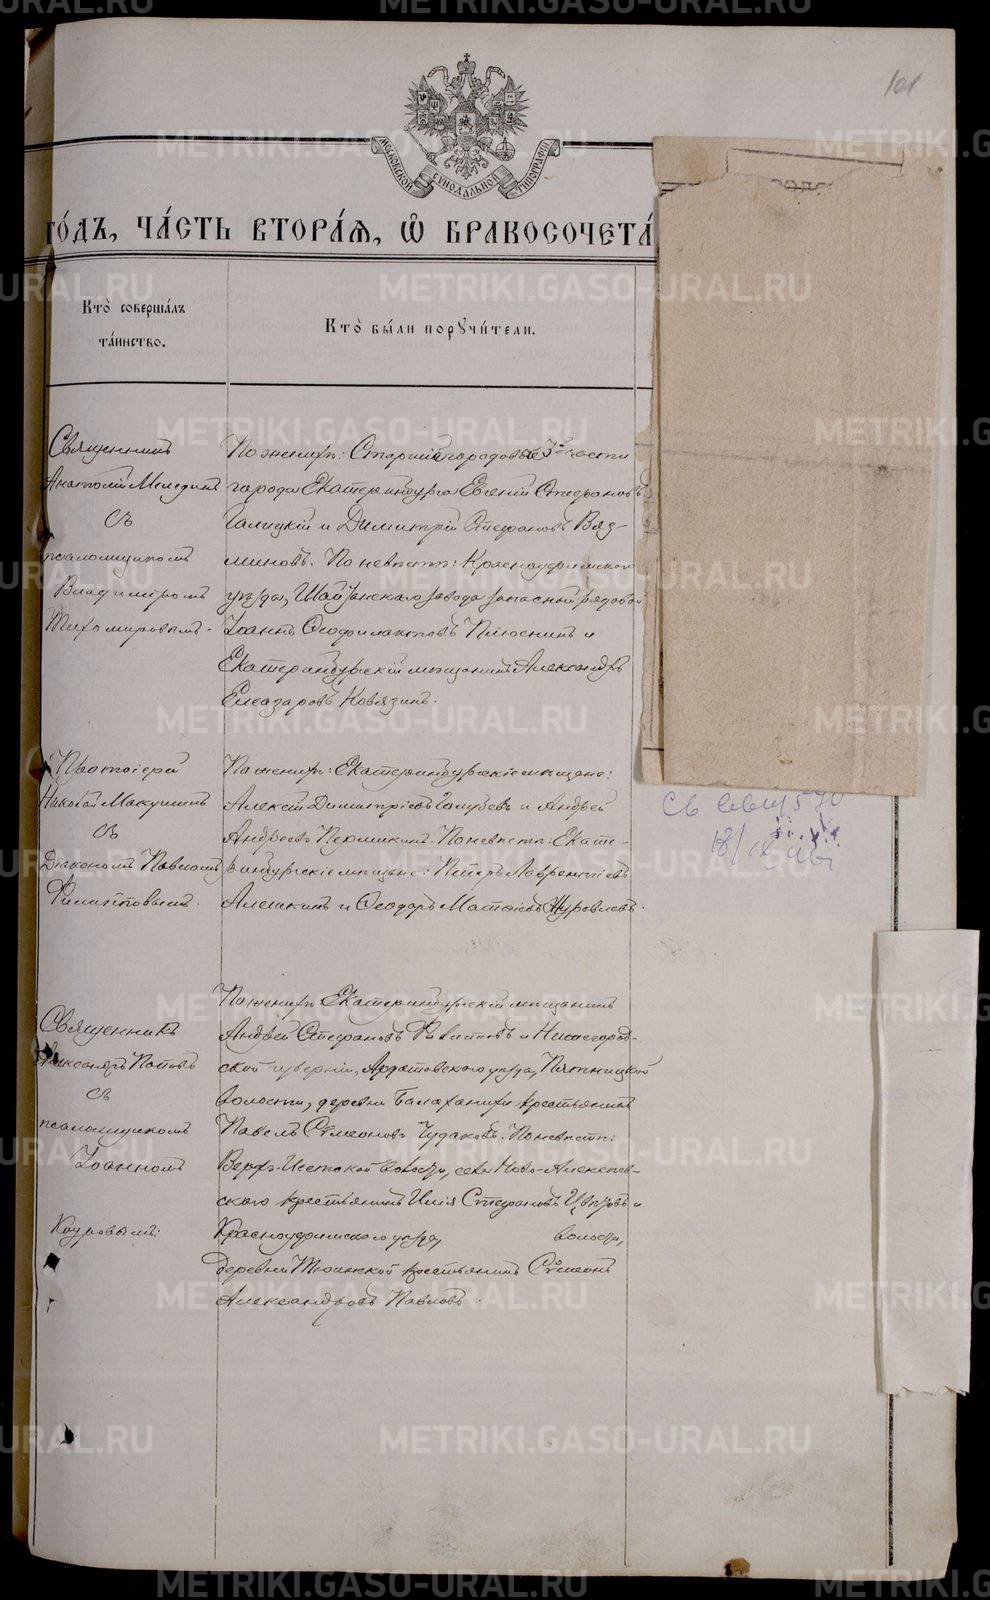 101
МОСКОВСКОЙ СѴНОДАЛЬНОЙ ТИПОГРАФІИ
ГО́ДЪ, ЧА́СТЬ ВТОРА́Я, Ѡ БРАКОСОЧЕТА́
Кто̀ соверша́лъ
та́инство.
Кто̀ бы́ли порꙋчи́тели.
Священникъ
Анатолій Меледин
съ
псаломщикомъ
Владиміромъ
Тихомировымъ.
По женихѣ: Старшій городовой 3й части
города Екатеринбурга Евгеній Стефановъ
Галицкій и Димитрій Стефановъ Вяз-
миновъ. По невѣстѣ: Красноуфимскаго
уѣзда, Шайтанскаго завода запасный рядовой
Іоаннъ Ѳеофилактовъ Плюснинъ и
Екатеринбургскій мѣщанинъ Александръ
Елеазаровъ Ковязинъ.
Протоіерей
Николай Макушинъ
съ
Діакономъ Павломъ
Филаѳтовымъ.
По женихѣ: Екатеринбургскіе мѣщане:
Алексѣй Димитріевъ и Андрей
Андреевъ Пермикинъ. По невѣстѣ: Екате-
ринбургскіе мѣщане: Петръ Лаврентіевъ
Алешкинъ и Ѳеодоръ Матѳіевъ Журавлевъ.
Св 590
18/IX
Священникъ
Александръ Поповъ
съ
псаломщикомъ
Іоанномъ
Кауровымъ:
По женихѣ Екатеринбургскій мѣщанинъ
Андрей Стефановъ Филиповъ и Нижегород-
ской губерніи, Ардатовскаго уѣзда, Пятницкой
волости, деревни Балаханихи крестьянинъ
Павелъ Сѵмеоновъ Чудаковъ. По невѣстѣ:
Верхъ-Исетской волости, села Ново-Алексѣев-
скаго крестьянинъ Илія Стефановъ и
Красноуфимскаго уѣзда, волости,
деревни Тюинской крестьянинъ Сѵмеонъ
Александровъ Павловъ.
METRIKI.GASO-URAL.RU